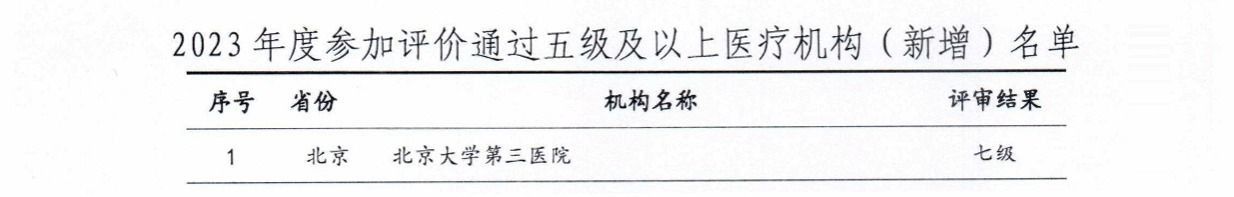 2023年度参加评价通过五级及以上医疗机构（新增）名单
序号 省份 机构名称 评审结果
1 北京 北京大学第三医院 七级